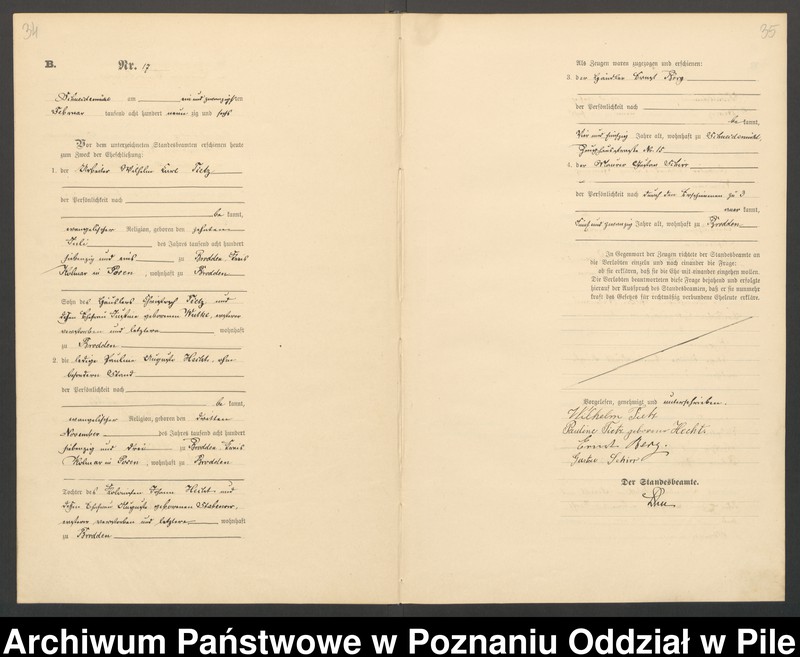 34
B. Nr. 17
Schneidemühl am ein und zwanzigsten
Februar tausend acht hundert neunzig und sechs
Vor dem unterzeichneten Standesbeamten erschienen heute
zum Zweck der Eheschließung:
1. der Arbeiter Wilhelm Carl Tietz
der Persönlichkeit nach
be kannt,
evangelischer Religion, geboren den zehnten
Juli des Jahres tausend acht hundert
siebenzig und eins zu Brodden Kreis
Kolmar in Posen, wohnhaft zu Brodden
Sohn des Häuslers Christoph Tietz und
dessen Ehefrau geborenen Wutke, ersterer
verstorben und letztere wohnhaft
zu Brodden
2. die ledige Pauline Auguste Hecht, ohne
besondern Stand
der Persönlichkeit nach
be kannt,
evangelischer Religion, geboren den dritten
November des Jahres tausend acht hundert
siebenzig und drei zu Brodden Kreis
Kolmar in Posen, wohnhaft zu Brodden
Tochter des Johann Hecht und
dessen Ehefrau Auguste geborenen
ersterer verstorben und letztere wohnhaft
zu Brodden
35
Als Zeugen waren zugezogen und erschienen:
3. der Händler Ernst Berg
der Persönlichkeit nach
be kannt,
vier und fünfzig Jahre alt, wohnhaft zu Schneidemühl,
4. der Maurer Gustav Schirr
der Persönlichkeit nach durch den Erschienenen zu 3
aner kannt,
und zwanzig Jahre alt, wohnhaft zu Brodden
In Gegenwart der Zeugen richtete der Standesbeamte an
die Verlobten einzeln und nach einander die Frage:
ob sie erklären, daß sie die Ehe mit einander eingehen wollen.
Die Verlobten beantworteten diese Frage bejahend und erfolgte
hierauf der Ausspruch des Standesbeamten, daß er sie nunmehr
kraft des Gesetzes für rechtmäßig verbundene Eheleute erkläre.
Vorgelesen, genehmigt und unterschrieben.
Wilhelm Tietz
Pauline Tietz geborene Hecht
Ernst Berg.
Gustav Schirr
Der Standesbeamte.
Archiwum Państwowe w Poznaniu Oddział w Pile